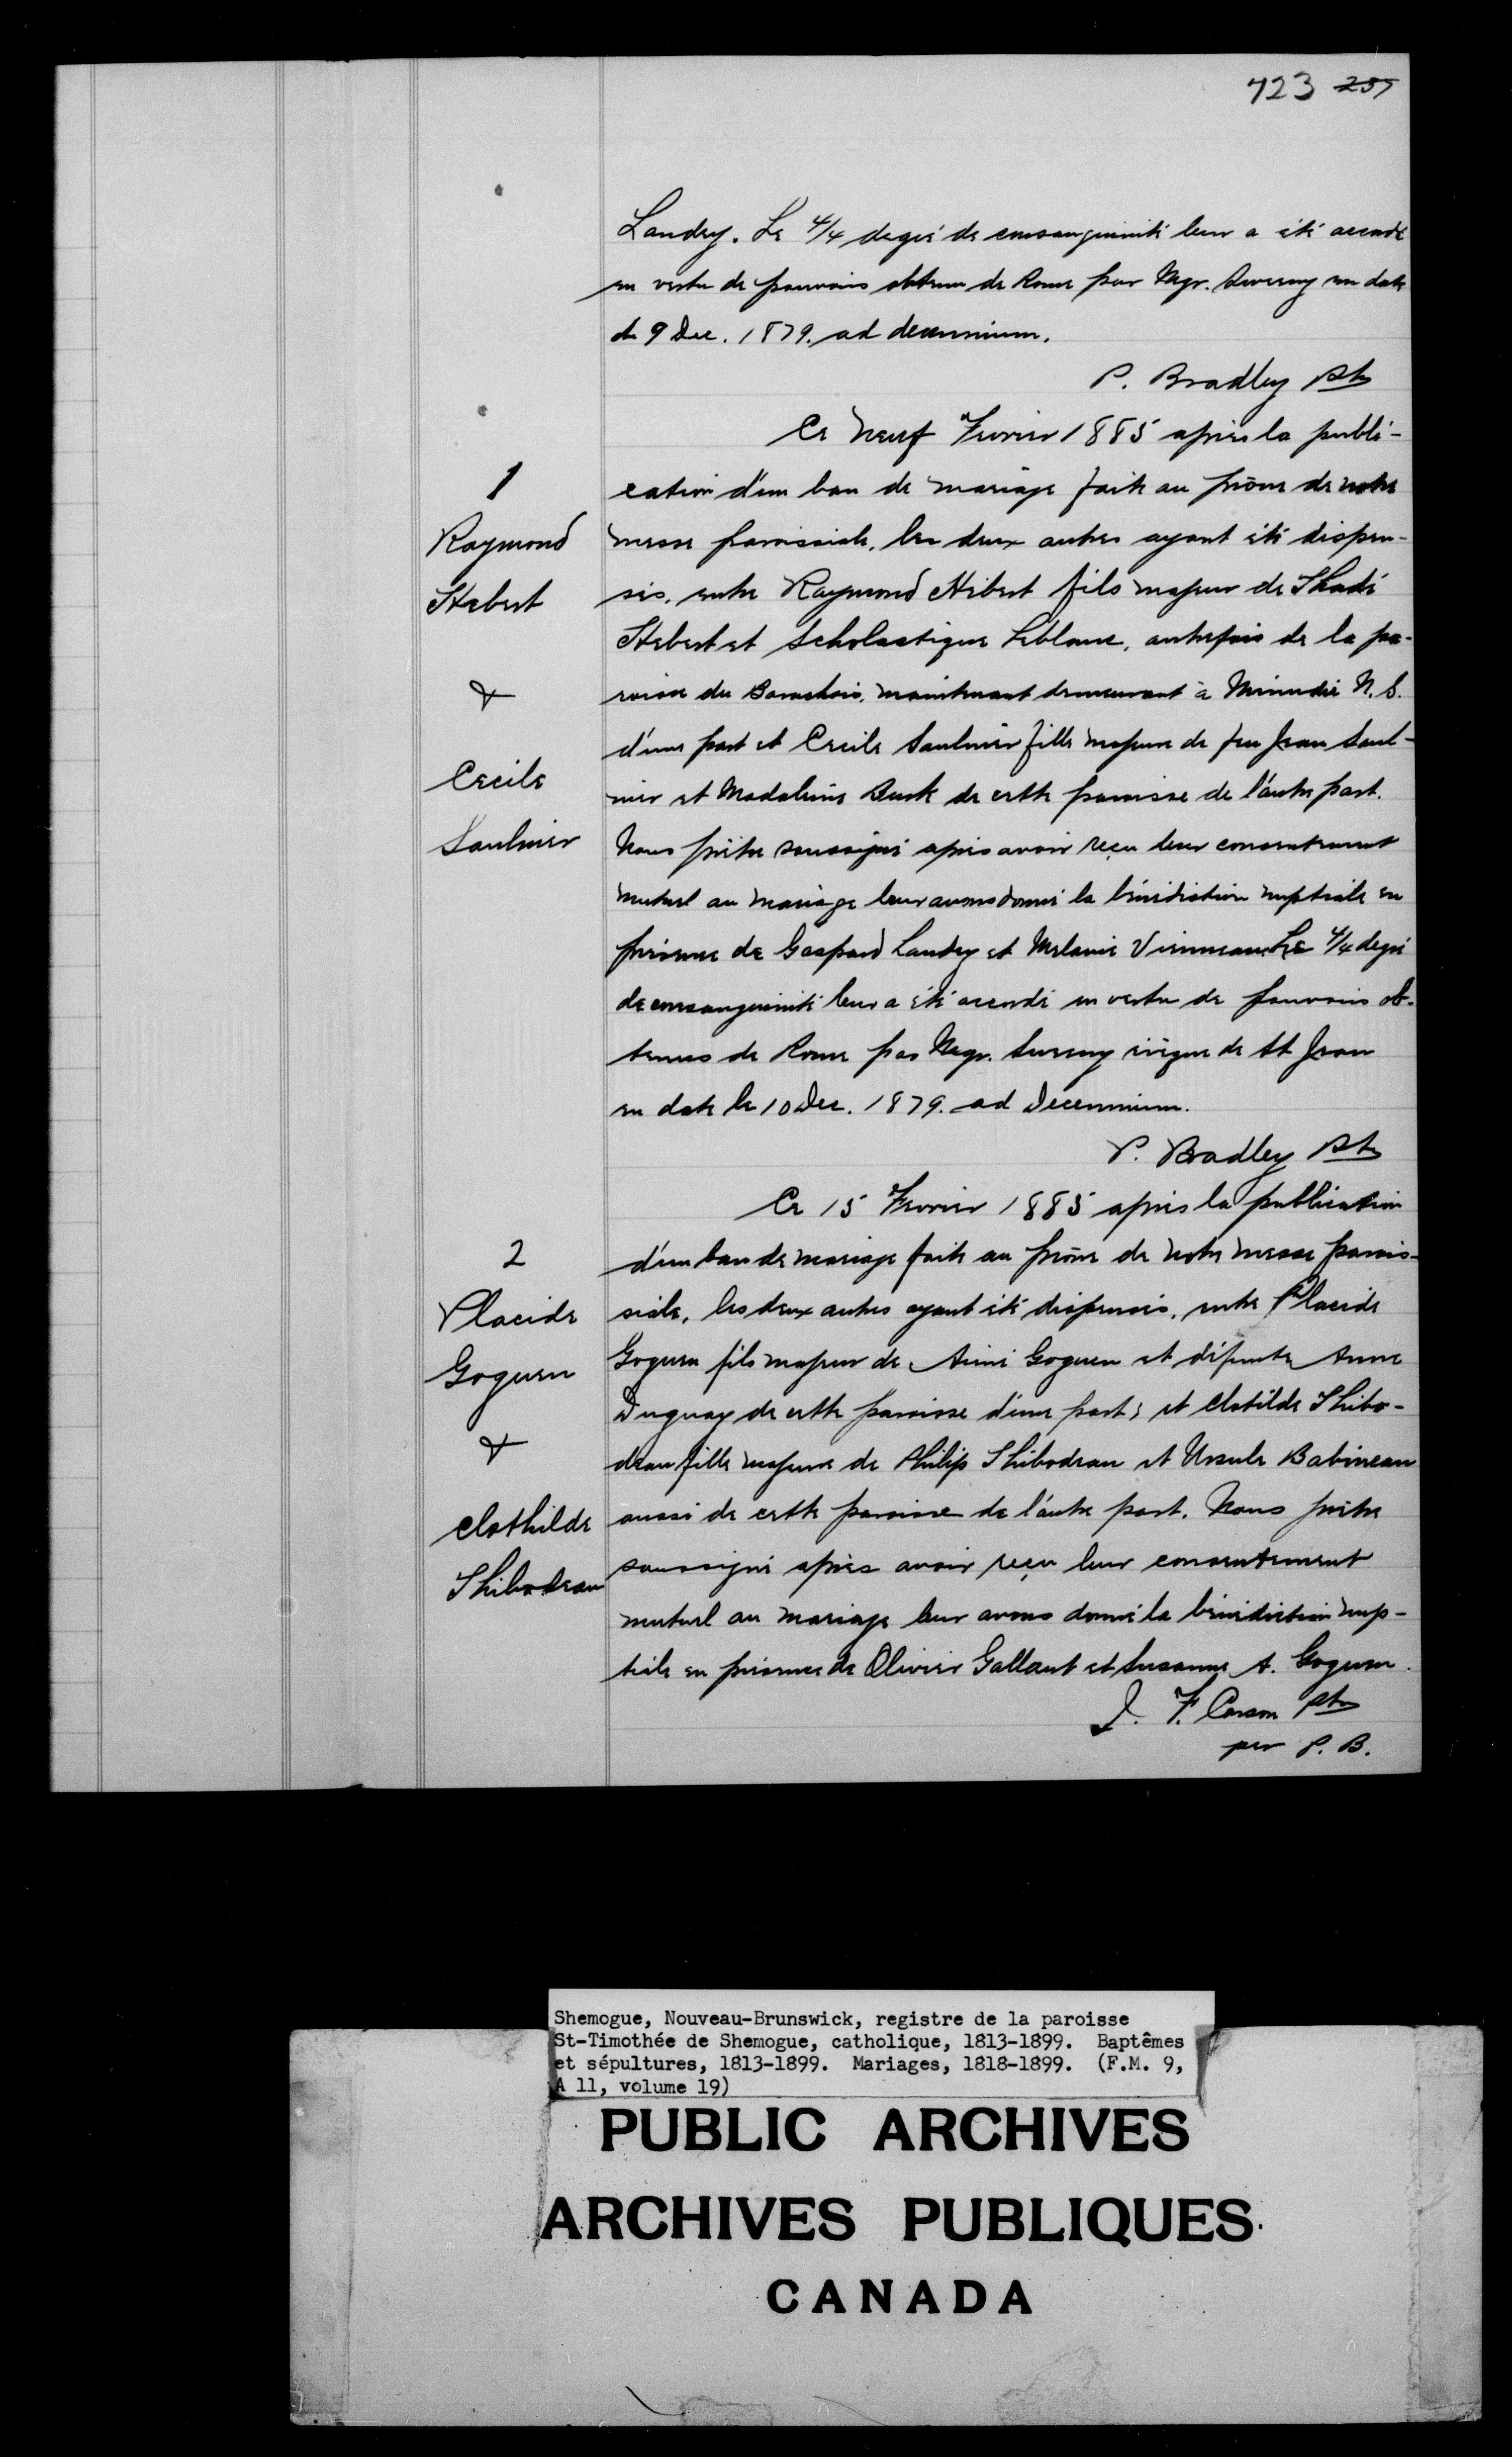 723 257
Landry. Le 4/4 degré de consanguinité leur a été accordé
en vertu de pouvoirs obtenu de Rome par Mgr. Sweeny en date
du 9 Dec. 1879. ad decennium.
P. Bradley Ptr
Ce neuf Fevrier 1885 après la publi-
1
cation d'un ban de mariage faite au prône de notre
Raymond
messe paroissiale, les deux autres ayant été dispen-
Hebert
sés, entre Raymond Hébert fils majeur de Thadé
Hebert et Scholastique Leblanc, autrefois de la pa-
&
roisse du Barachois, maintenant demeurant à Minudie N.S.
d'une part et Cecile Saulnier fille majeure de feu Jean Saul-
Cecile
nier et Madeleine Burk de cette paroisse de l'autre part.
Saulnier
Nous prêtre soussigné après avoir reçu leur consentement
mutuel au mariage leur avons donné la bénédiction nuptiale en
présence de Gaspard Landry et Melanie Vienneau. Le 4/4 degré
de consanguinité leur a été accordé en vertu de pouvoirs ob-
tenus de Rome par Mgr. Sweeny évêque de St Jean
en date le 10 Dec. 1879. ad Decennium.
P. Bradley Ptr
Ce 15 Fevrier 1885 après la publication
2
d'un ban de mariage faite au prône de notre messe parois-
Placide
siale, les deux autres ayant été dispensés, entre Placide
Goguen
Goguen fils majeur de Aimé Goguen et défunte Anne
Duguay de cette paroisse d'une part; et Clotilde Thibo-
&
deau fille majeure de Philip Thibodeau et Ursule Babineau
clothilde
aussi de cette paroisse de l'autre part. Nous prêtre
Thibodeau
soussigné après avoir reçu leur consentement
mutuel au mariage leur avons donné la bénédiction nup-
tiale en présence de Olivier Gallant et Susanne A. Goguen.
J. F. Carson Ptr
per P. B.
Shemogue, Nouveau-Brunswick, registre de la paroisse
St-Timothée de Shemogue, catholique, 1813-1899. Baptêmes
et sépultures, 1813-1899. Mariages, 1818-1899. (F.M. 9,
A 11, volume 19)
PUBLIC ARCHIVES
ARCHIVES PUBLIQUES
CANADA